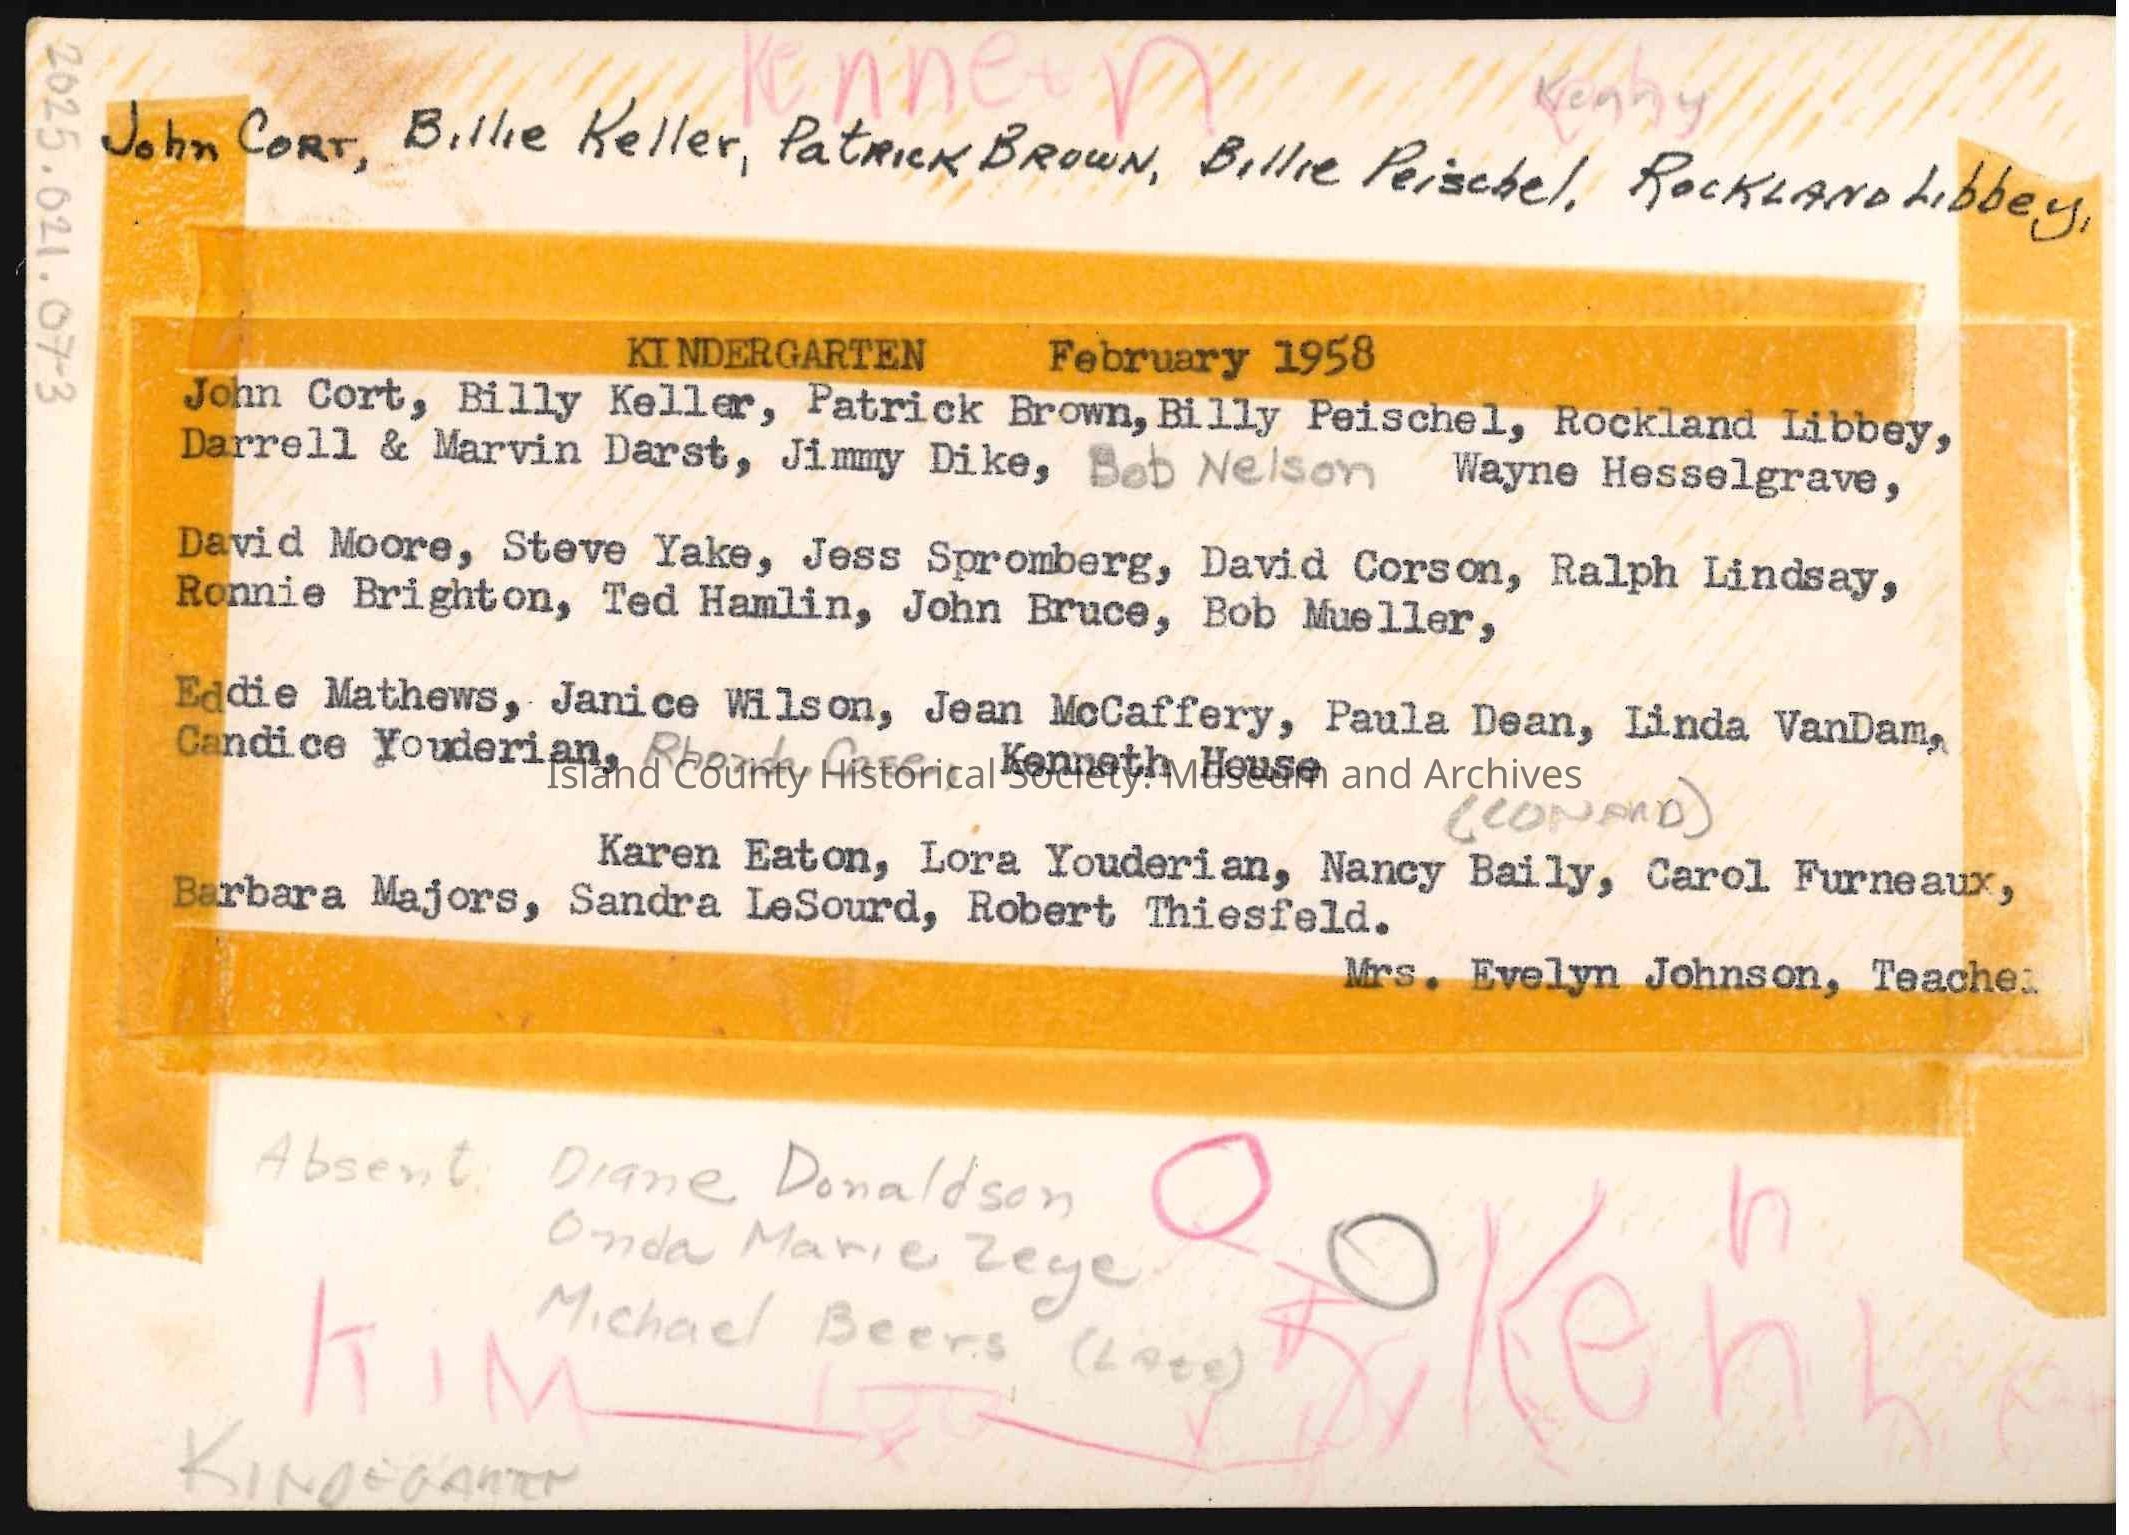 2025.021.073
Kenneth
Kenny
John Cort, Billie Keller, Patrick Brown, Billie Peischel, Rockland Libbey,
KINDERGARTEN February 1958
John Cort, Billy Keller, Patrick Brown, Billy Peischel, Rockland Libbey,
Darrell & Marvin Darst, Jimmy Dike, Bob Nelson Wayne Hesselgrave,
David Moore, Steve Yake, Jess Spromberg, David Corson, Ralph Lindsay,
Ronnie Brighton, Ted Hamlin, John Bruce, Bob Mueller,
Eddie Mathews, Janice Wilson, Jean McCaffery, Paula Dean, Linda VanDam,
Candice Youderian, Rhonda Case, Kenneth House
Island County Historical Society: Museum and Archives
Karen Eaton, Lora Youderian, Nancy Baily, Carol Furneaux,
Barbara Majors, Sandra LeSourd, Robert Thiesfeld.
Mrs. Evelyn Johnson, Teacher
Absent: Diane Donaldson
Onda Marie Zeye
Michael Beers (Late)
Kim
Ken